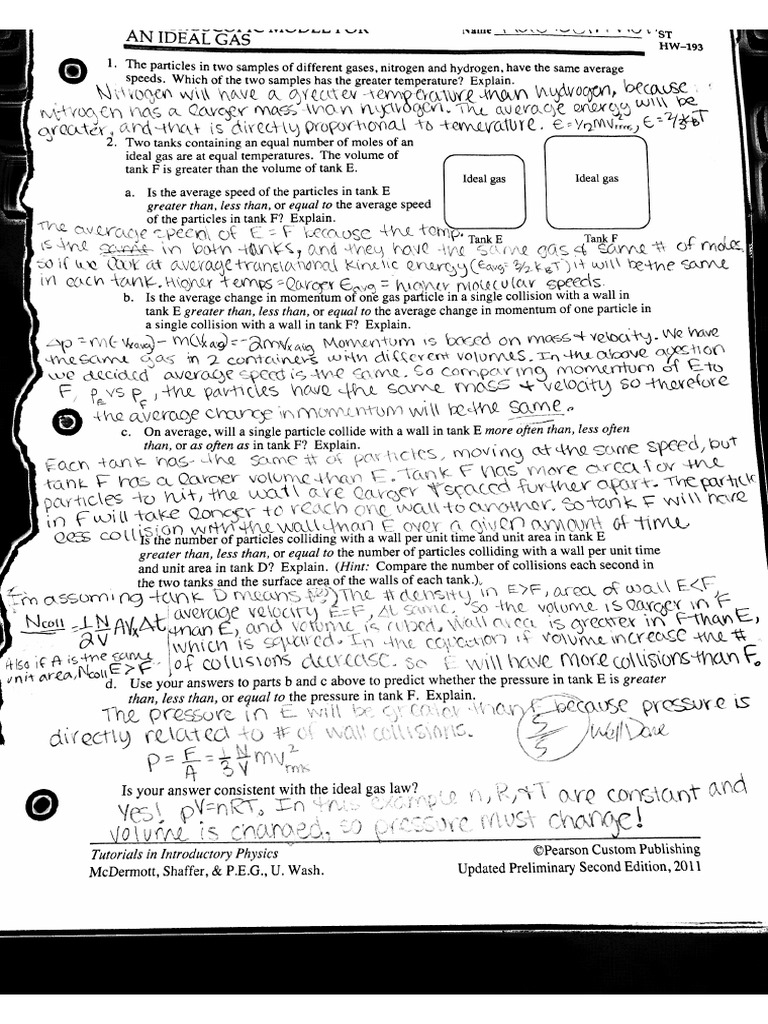 AN IDEAL GAS
Name
ST
HW–193
1. The particles in two samples of different gases, nitrogen and hydrogen, have the same average
speeds. Which of the two samples has the greater temperature? Explain.
Nitrogen will have a greater temperature than hydrogen, because
nitrogen has a larger mass than hydrogen. The average energy will be
greater, and that is directly proportional to temerature. ε=1/2mVrms, ε=2/3kBT
2. Two tanks containing an equal number of moles of an
ideal gas are at equal temperatures. The volume of
tank F is greater than the volume of tank E.
Ideal gas
Ideal gas
a. Is the average speed of the particles in tank E
greater than, less than, or equal to the average speed
of the particles in tank F? Explain.
Tank E
Tank F
The average speed of E=F because the temp.
is the same in both tanks, and they have the same gas & same # of moles.
so if we look at average translational kinetic energy (Eavg=3/2 kBT) it will be the same
in each tank. Higher temps = larger Eavg = higher molecular speeds.
b. Is the average change in momentum of one gas particle in a single collision with a wall in
tank E greater than, less than, or equal to the average change in momentum of one particle in
a single collision with a wall in tank F? Explain.
Δp=m(-Vxavg)-m(Vxavg)=-2mVxavg Momentum is based on mass & velocity. We have
the same gas in 2 containers with different volumes. In the above question
we decided average speed is the same. So comparing momentum of E to
F, pE vs pF, the particles have the same mass & velocity so therefore
the average change in momentum will be the same.
c. On average, will a single particle collide with a wall in tank E more often than, less often
than, or as often as in tank F? Explain.
Each tank has the same # of particles, moving at the same speed, but
tank F has a larger volume than E. Tank F has more area for the
particles to hit, the wall are larger & spaced further apart. The particle
in F will take longer to reach one wall to another. So tank F will have
less collision with the wall than E over a given amount of time
Is the number of particles colliding with a wall per unit time and unit area in tank E
greater than, less than, or equal to the number of particles colliding with a wall per unit time
and unit area in tank D? Explain. (Hint: Compare the number of collisions each second in
the two tanks and the surface area of the walls of each tank.)
I'm assuming tank D means F?) The # density in E>F, area of wall E<F,
Ncoll = 1/2 N/V AVxΔt
average velocity E=F, Δt same. So the volume is larger in F
than E, and volume is cubed, wall area is greater in F than E,
which is squared. In the equation if volume increase the #
of collisions decrease. so E will have more collisions than F.
Also if A is the same
unit area, Ncoll E>F.
d. Use your answers to parts b and c above to predict whether the pressure in tank E is greater
than, less than, or equal to the pressure in tank F. Explain.
The pressure in E will be greater than F because pressure is
directly related to # of wall collisions.
5/5 Well Done
P = F/A = 1/3 N/V mv²rms
Is your answer consistent with the ideal gas law?
Yes! pV=nRT. In this example n, R, & T are constant and
volume is changed, so pressure must change!
Tutorials in Introductory Physics
McDermott, Shaffer, & P.E.G., U. Wash.
©Pearson Custom Publishing
Updated Preliminary Second Edition, 2011